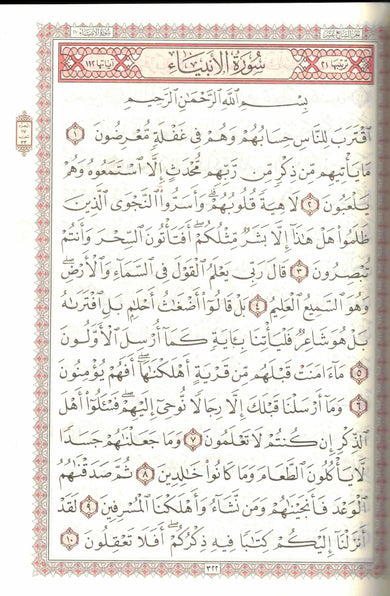 سُورَةُ الأَنبِيَاءِ
ترتيبها ٢١
آياتها ١١٢
بِسْمِ ٱللَّهِ ٱلرَّحْمَٰنِ ٱلرَّحِيمِ
ٱقْتَرَبَ لِلنَّاسِ حِسَابُهُمْ وَهُمْ فِى غَفْلَةٍ مُّعْرِضُونَ ١
مَا يَأْتِيهِم مِّن ذِكْرٍ مِّن رَّبِّهِم مُّحْدَثٍ إِلَّا ٱسْتَمَعُوهُ وَهُمْ
يَلْعَبُونَ ٢ لَاهِيَةً قُلُوبُهُمْ ۗ وَأَسَرُّوا۟ ٱلنَّجْوَى ٱلَّذِينَ
ظَلَمُوا۟ هَلْ هَٰذَآ إِلَّا بَشَرٌ مِّثْلُكُمْ ۖ أَفَتَأْتُونَ ٱلسِّحْرَ وَأَنتُمْ
تُبْصِرُونَ ٣ قَالَ رَبِّى يَعْلَمُ ٱلْقَوْلَ فِى ٱلسَّمَآءِ وَٱلْأَرْضِ ۖ
وَهُوَ ٱلسَّمِيعُ ٱلْعَلِيمُ ٤ بَلْ قَالُوٓا۟ أَضْغَٰثُ أَحْلَٰمٍۭ بَلِ ٱفْتَرَىٰهُ
بَلْ هُوَ شَاعِرٌ فَلْيَأْتِنَا بِـَٔايَةٍ كَمَآ أُرْسِلَ ٱلْأَوَّلُونَ
٥ مَآ ءَامَنَتْ قَبْلَهُم مِّن قَرْيَةٍ أَهْلَكْنَٰهَآ ۖ أَفَهُمْ يُؤْمِنُونَ
٦ وَمَآ أَرْسَلْنَا قَبْلَكَ إِلَّا رِجَالًا نُّوحِىٓ إِلَيْهِمْ ۖ فَسْـَٔلُوٓا۟ أَهْلَ
ٱلذِّكْرِ إِن كُنتُمْ لَا تَعْلَمُونَ ٧ وَمَا جَعَلْنَٰهُمْ جَسَدًا
لَّا يَأْكُلُونَ ٱلطَّعَامَ وَمَا كَانُوا۟ خَٰلِدِينَ ٨ ثُمَّ صَدَقْنَٰهُمُ
ٱلْوَعْدَ فَأَنجَيْنَٰهُمْ وَمَن نَّشَآءُ وَأَهْلَكْنَا ٱلْمُسْرِفِينَ ٩ لَقَدْ
أَنزَلْنَآ إِلَيْكُمْ كِتَٰبًا فِيهِ ذِكْرُكُمْ ۖ أَفَلَا تَعْقِلُونَ ١٠
٣٢٢